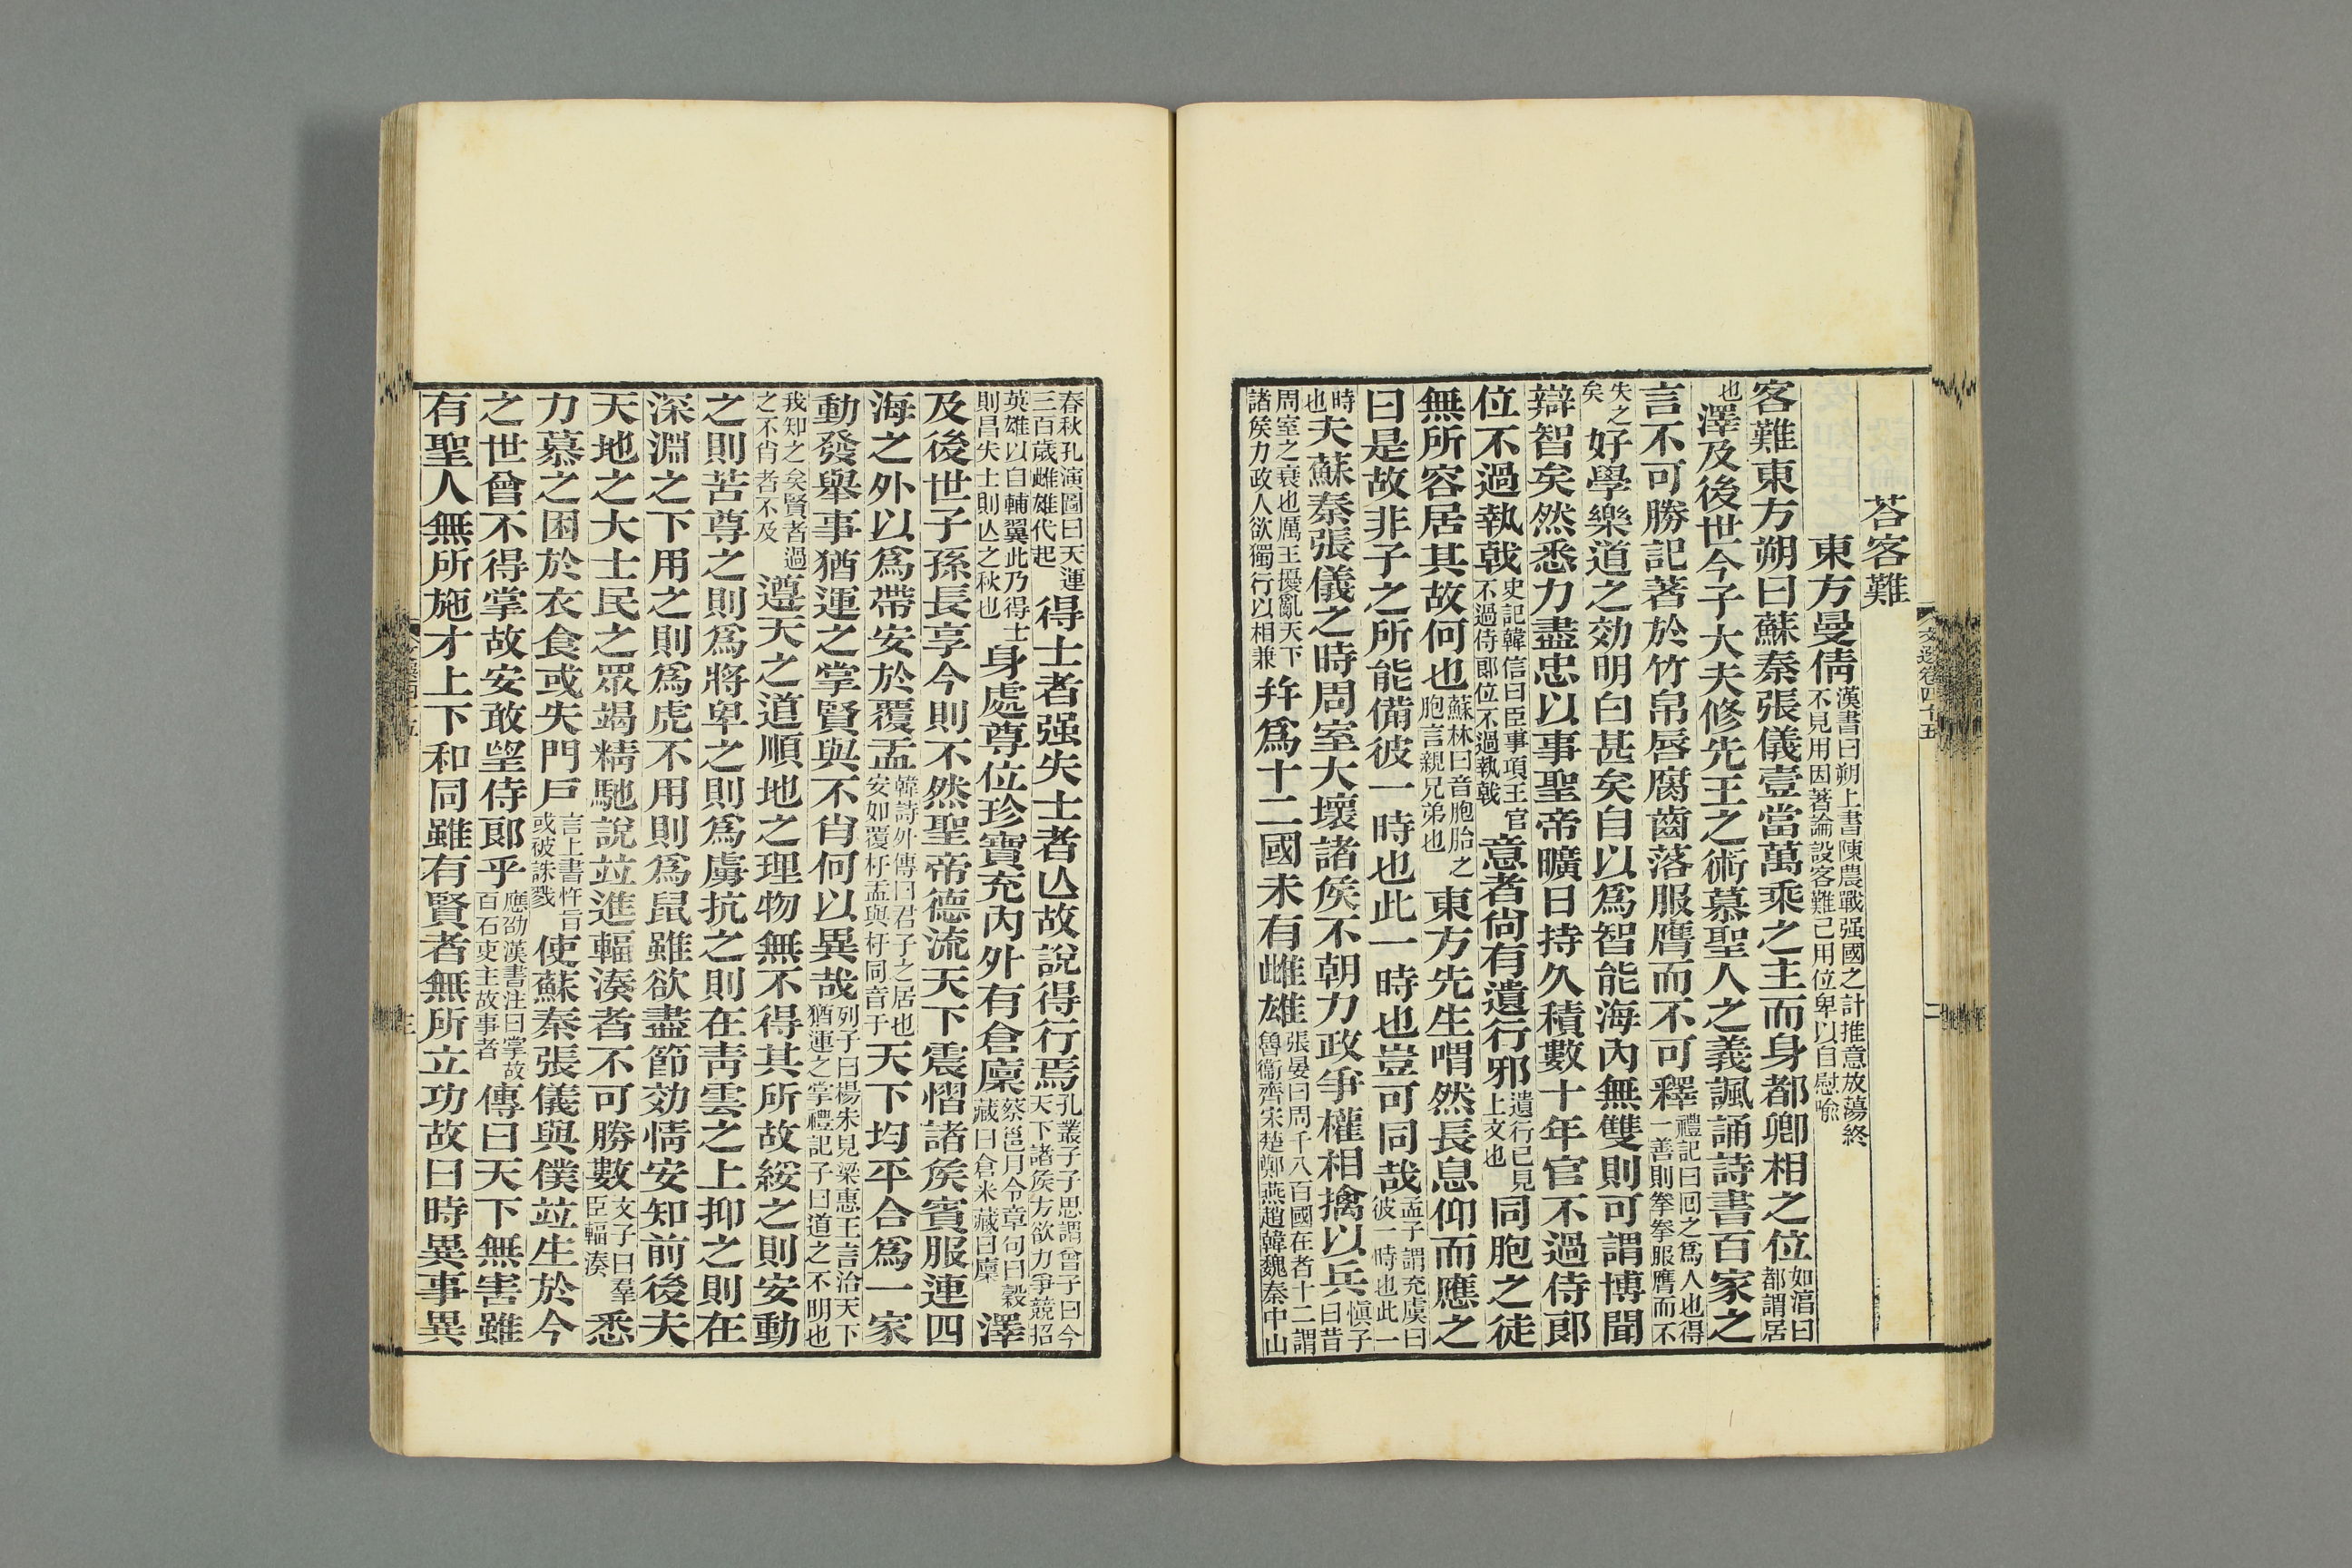 文選卷四十五
二
荅客難
東方曼倩漢書曰朔上書陳農戰强國之計推意放蕩終不見用因著論設客難己用位卑以自慰喩
客難東方朔曰蘇秦張儀壹當萬乘之主而身都卿相之位如淳曰都謂居
也澤及後世今子大夫修先王之術慕聖人之義諷誦詩書百家之
言不可勝記著於竹帛唇腐齒落服膺而不可釋禮記曰囘之爲人也得一善則拳拳服膺而不
失之矣好學樂道之効明白甚矣自以爲智能海內無雙則可謂博聞
辯智矣然悉力盡忠以事聖帝曠日持久積數十年官不過侍郞
位不過執戟史記韓信曰臣事項王官不過侍郞位不過執戟意者尙有遺行邪遺行已見上文也同胞之徒
無所容居其故何也蘇林曰音胞胎之胞言親兄弟也東方先生喟然長息仰而應之
曰是故非子之所能備彼一時也此一時也豈可同哉孟子謂充虞曰彼一時也此一
時也夫蘇秦張儀之時周室大壞諸矦不朝力政爭權相擒以兵愼子曰昔
周室之衰也厲王擾亂天下諸矦力政人欲獨行以相兼幷爲十二國未有雌雄張晏曰周千八百國在者十二謂魯衞齊宋楚鄭燕趙韓魏秦中山
春秋孔演圖曰天運三百歲雌雄代起得士者强失士者亾故說得行焉孔叢子子思謂曾子曰今天下諸矦方欲力爭競招
英雄以自輔翼此乃得士則昌失士則亾之秋也身處尊位珍寶充內外有倉廩蔡邕月令章句曰穀藏曰倉米藏曰廩澤
及後世子孫長享今則不然聖帝德流天下震慴諸矦賓服連四
海之外以爲帶安於覆盂韓詩外傳曰君子之居也安如覆杅盂與杅同音于天下均平合爲一家
動發舉事猶運之掌賢與不肖何以異哉列子曰楊朱見梁惠王言治天下猶運之掌禮記子曰道之不明也
我知之矣賢者過之不肖者不及遵天之道順地之理物無不得其所故綏之則安動
之則苦尊之則爲將卑之則爲虜抗之則在靑雲之上抑之則在
深淵之下用之則爲虎不用則爲鼠雖欲盡節効情安知前後夫
天地之大士民之眾竭精馳說竝進輻湊者不可勝數文子曰羣臣輻湊悉
力慕之困於衣食或失門戶言上書忤旨或被誅戮使蘇秦張儀與僕竝生於今
之世曾不得掌故安敢望侍郞乎應劭漢書注曰掌故百石吏主故事者傳曰天下無害雖
有聖人無所施才上下和同雖有賢者無所立功故曰時異事異
三